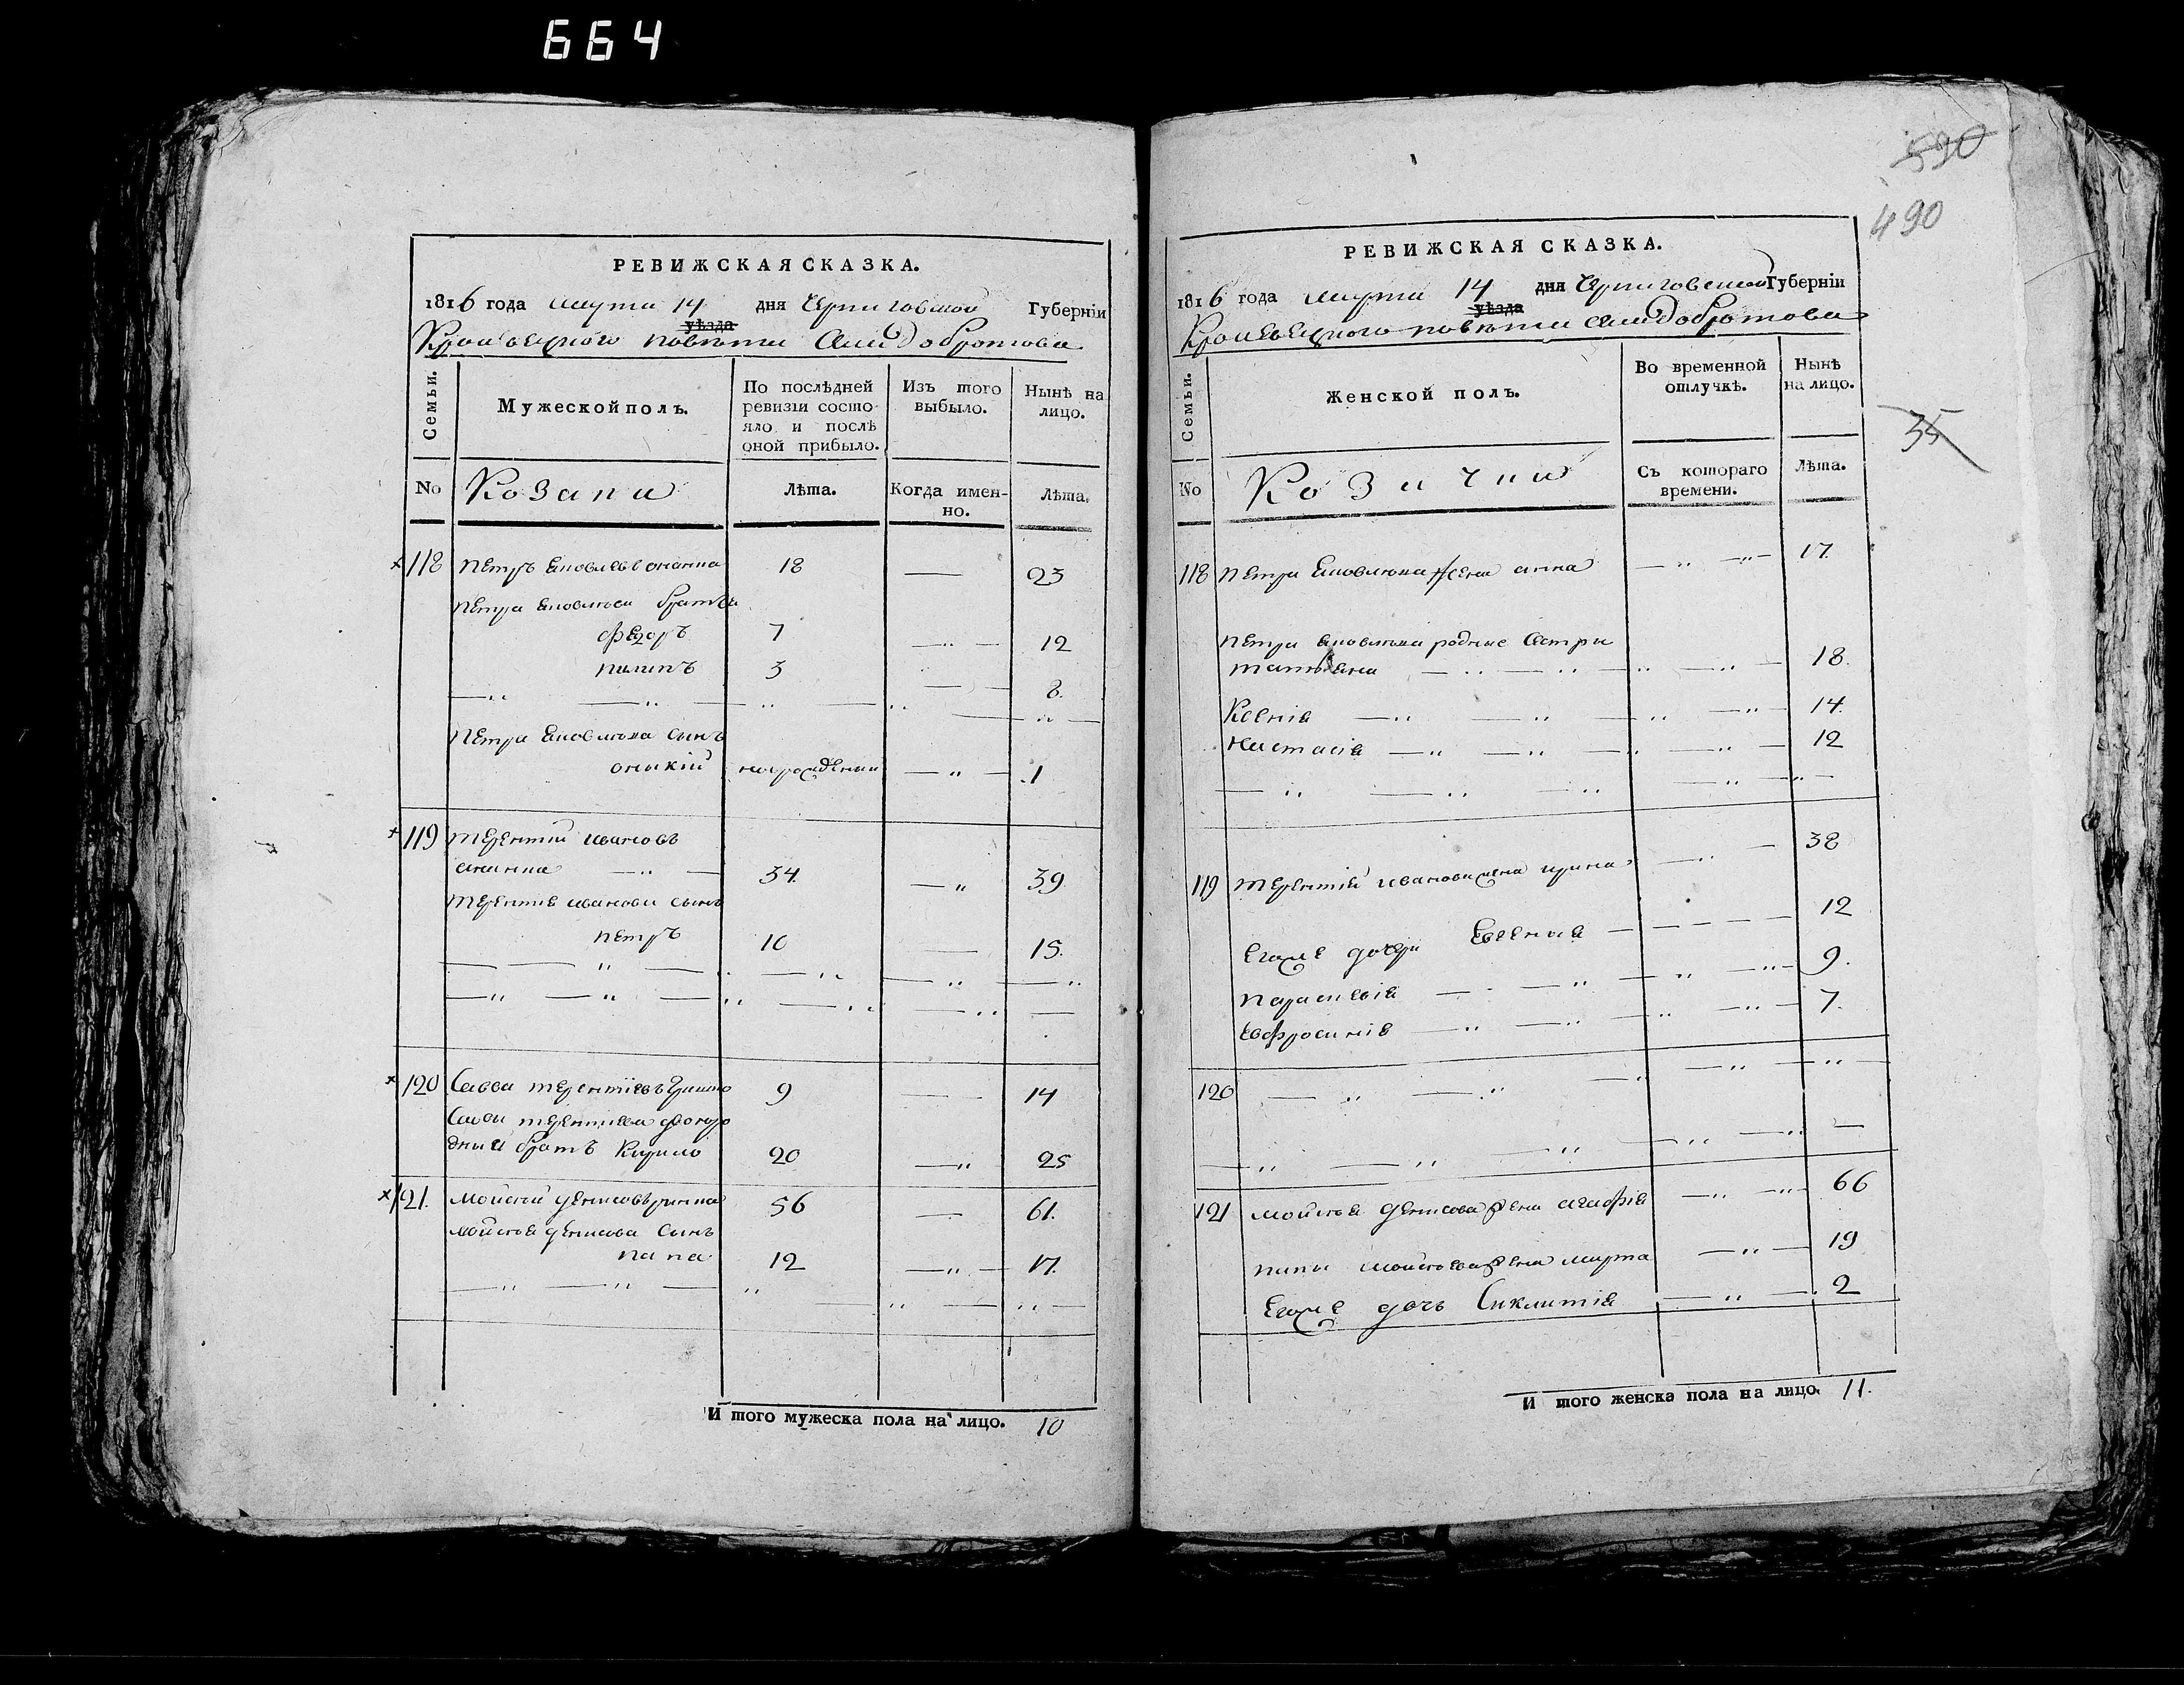 664
РЕВИЖСКАЯ СКАЗКА.
1816 года марта 14 дня Черниговской Губерніи
уѣзда
Кролевецкого повѣта села Добротова
Семьи.
Мужеской полъ.
По послѣдней ревизіи состояло и послѣ оной прибыло.
Изъ того выбыло.
Нынѣ на лицо.
No
Козаки
Лѣта.
Когда именно.
Лѣта.
118 Петръ Яковлевъ 18 — 23
Петра Яковлева братья
Федоръ 7 — " — 12
Пилипъ 3 — 8.
Петра Яковлева сынъ
новорожденный — " — 1
119 Терентій Ивановъ
34. — " 39.
Терентія Иванова сынъ
Петръ 10 — 15.
120 Савва Терентіевъ 9 — 14
Савы Терентіева двоюро
дный братъ Кирило 20 — " 25
121. Мойсей Денисовъ 56 — 61.
Мойсея Денисова сынъ
12 — " — 17.
И того мужеска пола на лицо. 10
590
490
РЕВИЖСКАЯ СКАЗКА.
1816 года марта 14 дня Черниговской Губерніи
уѣзда
Кролевецкого повѣта села Добротова
35
Семьи.
Женской полъ.
Во временной отлучкѣ.
Нынѣ на лицо.
No
Козачки
Съ котораго времени.
Лѣта.
118 Петра Яковлева жена Анна — " — " — 17.
Петра Яковлева родные сестры
Татьяна 18.
Ксенія 14.
Настасія 12
119 Терентія Иванова жена Ирина 38
Егоже дочери Евгенія 12
Параскевія 9.
Евфросинія 7.
120
121 Мойсея Денисова жена Агафія 66
Мойсеева жена Марта — " — 19
Егоже дочь Синклитія — " — 2
И того женска пола на лицо. 11.